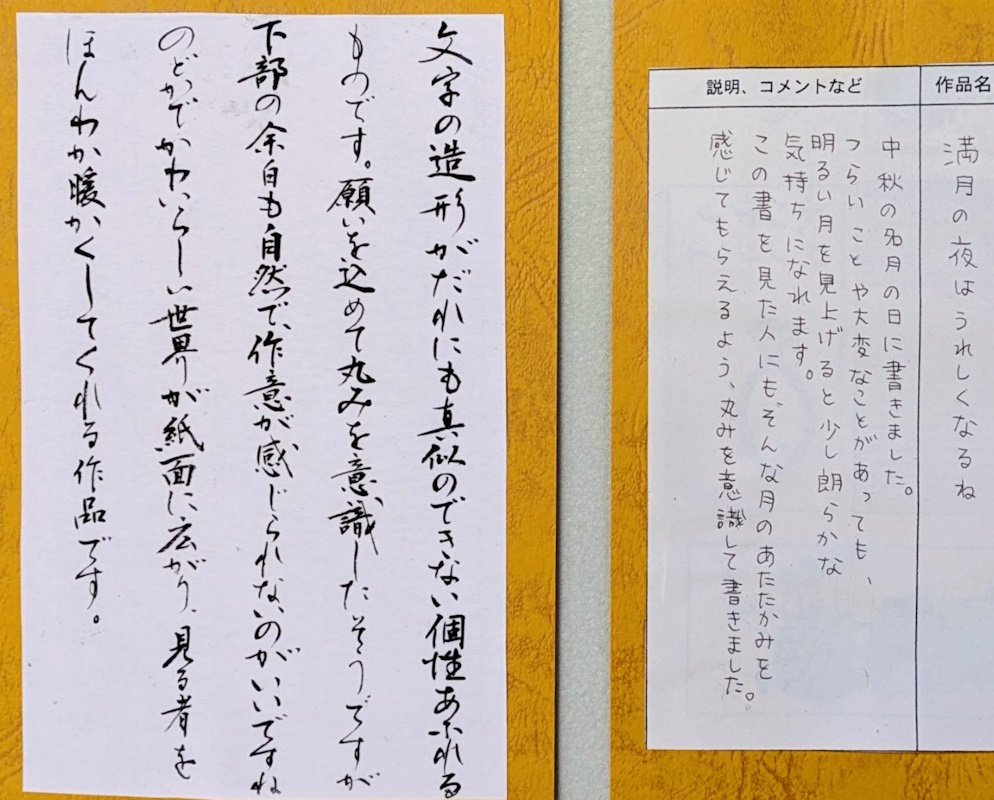 作品名
満月の夜はうれしくなるね
説明、コメントなど
中秋の名月の日に書きました。
つらいことや大変なことがあっても、
明るい月を見上げると少し朗らかな
気持ちになれます。
この書を見た人にも、そんな月のあたたかみを
感じてもらえるよう、丸みを意識して書きました。
文字の造形がだれにも真似のできない個性あふれる
ものです。願いを込めて丸みを意識したそうですが
下部の余白も自然で、作意が感じられないのがいいですね
のどかでかわいらしい世界が紙面に広がり、見る者を
ほんわか暖かくしてくれる作品です。